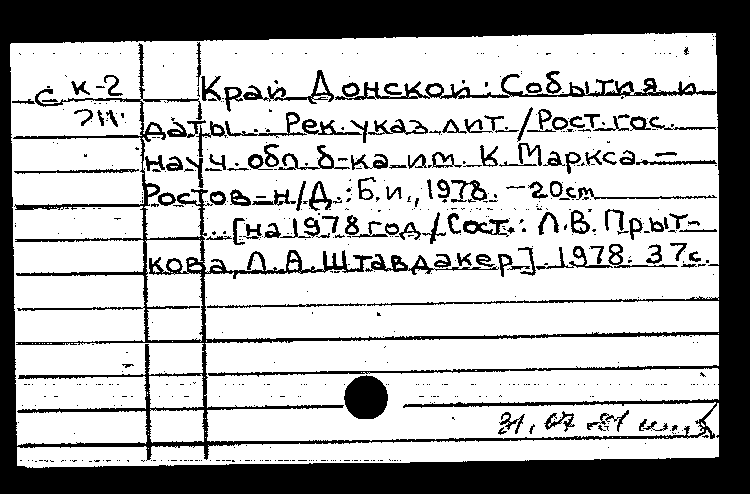 С К-2 Край Донской: События и
711. даты... Рек. указ. лит. / Рост. гос.
науч. обл. б-ка им. К. Маркса. —
Ростов-н/Д.: Б.и., 1978. — 20 cm
...[на 1978 год / Сост.: Л.В. Прыт-
кова, Л.А. Штавдакер]. 1978. 37с.
31.07-81